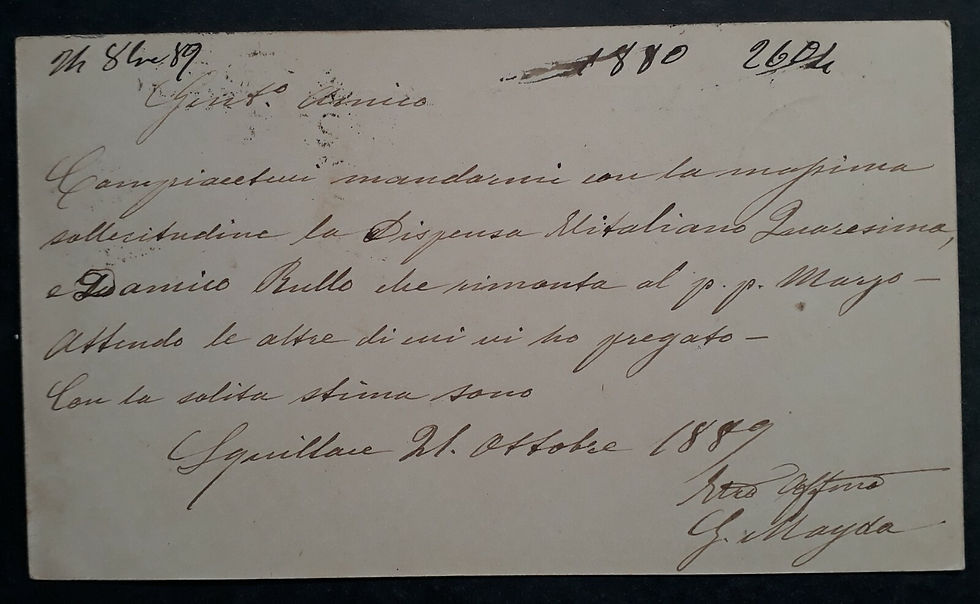 8bre 89 1880
Gent.o Amico
Compiacetevi mandarmi con la massima
sollecitudine la Dispensa Mitaliano Quaresima,
e Damico Rullo che rimonta al p. p. Marzo —
Attendo le altre di cui vi ho pregato —
Con la solita stima sono
Squillace 21. Ottobre 1889
Affmo
G. Mayda